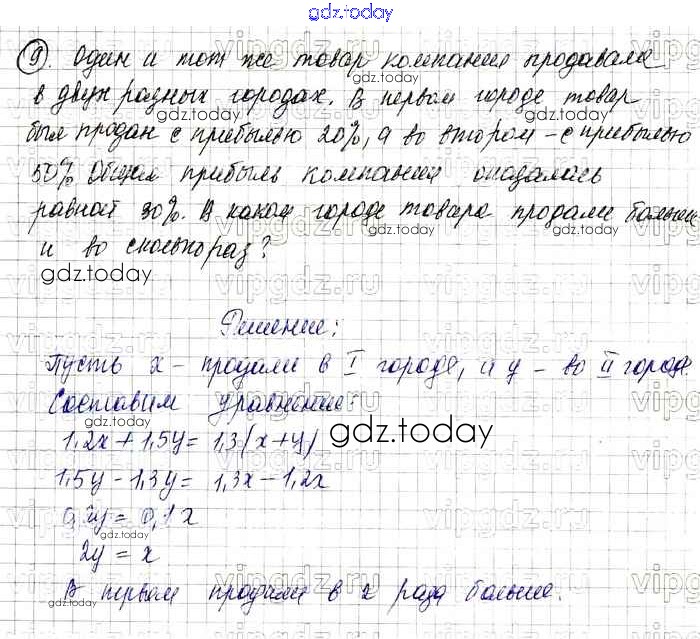 gdz.today
9. Один и тот же товар компания продавала
gdz.today
в двух разных городах. В первом городе товар
был продан с прибылью 20%, а во втором – с прибылью
gdz.today
50%. Общая прибыль компании оказалась
равной 30%. В каком городе товара продали больше
gdz.today
и во сколько раз?
gdz.today
Решение:
Пусть x – продали в I городе, и y – во II городе
Составим уравнение:
1,2x + 1,5y = 1,3(x+y)
gdz.today
1,5y – 1,3y = 1,3x – 1,2x
0,2y = 0,1x
gdz.today
2y = x
В первом продали в 2 раза больше.
gdz.today